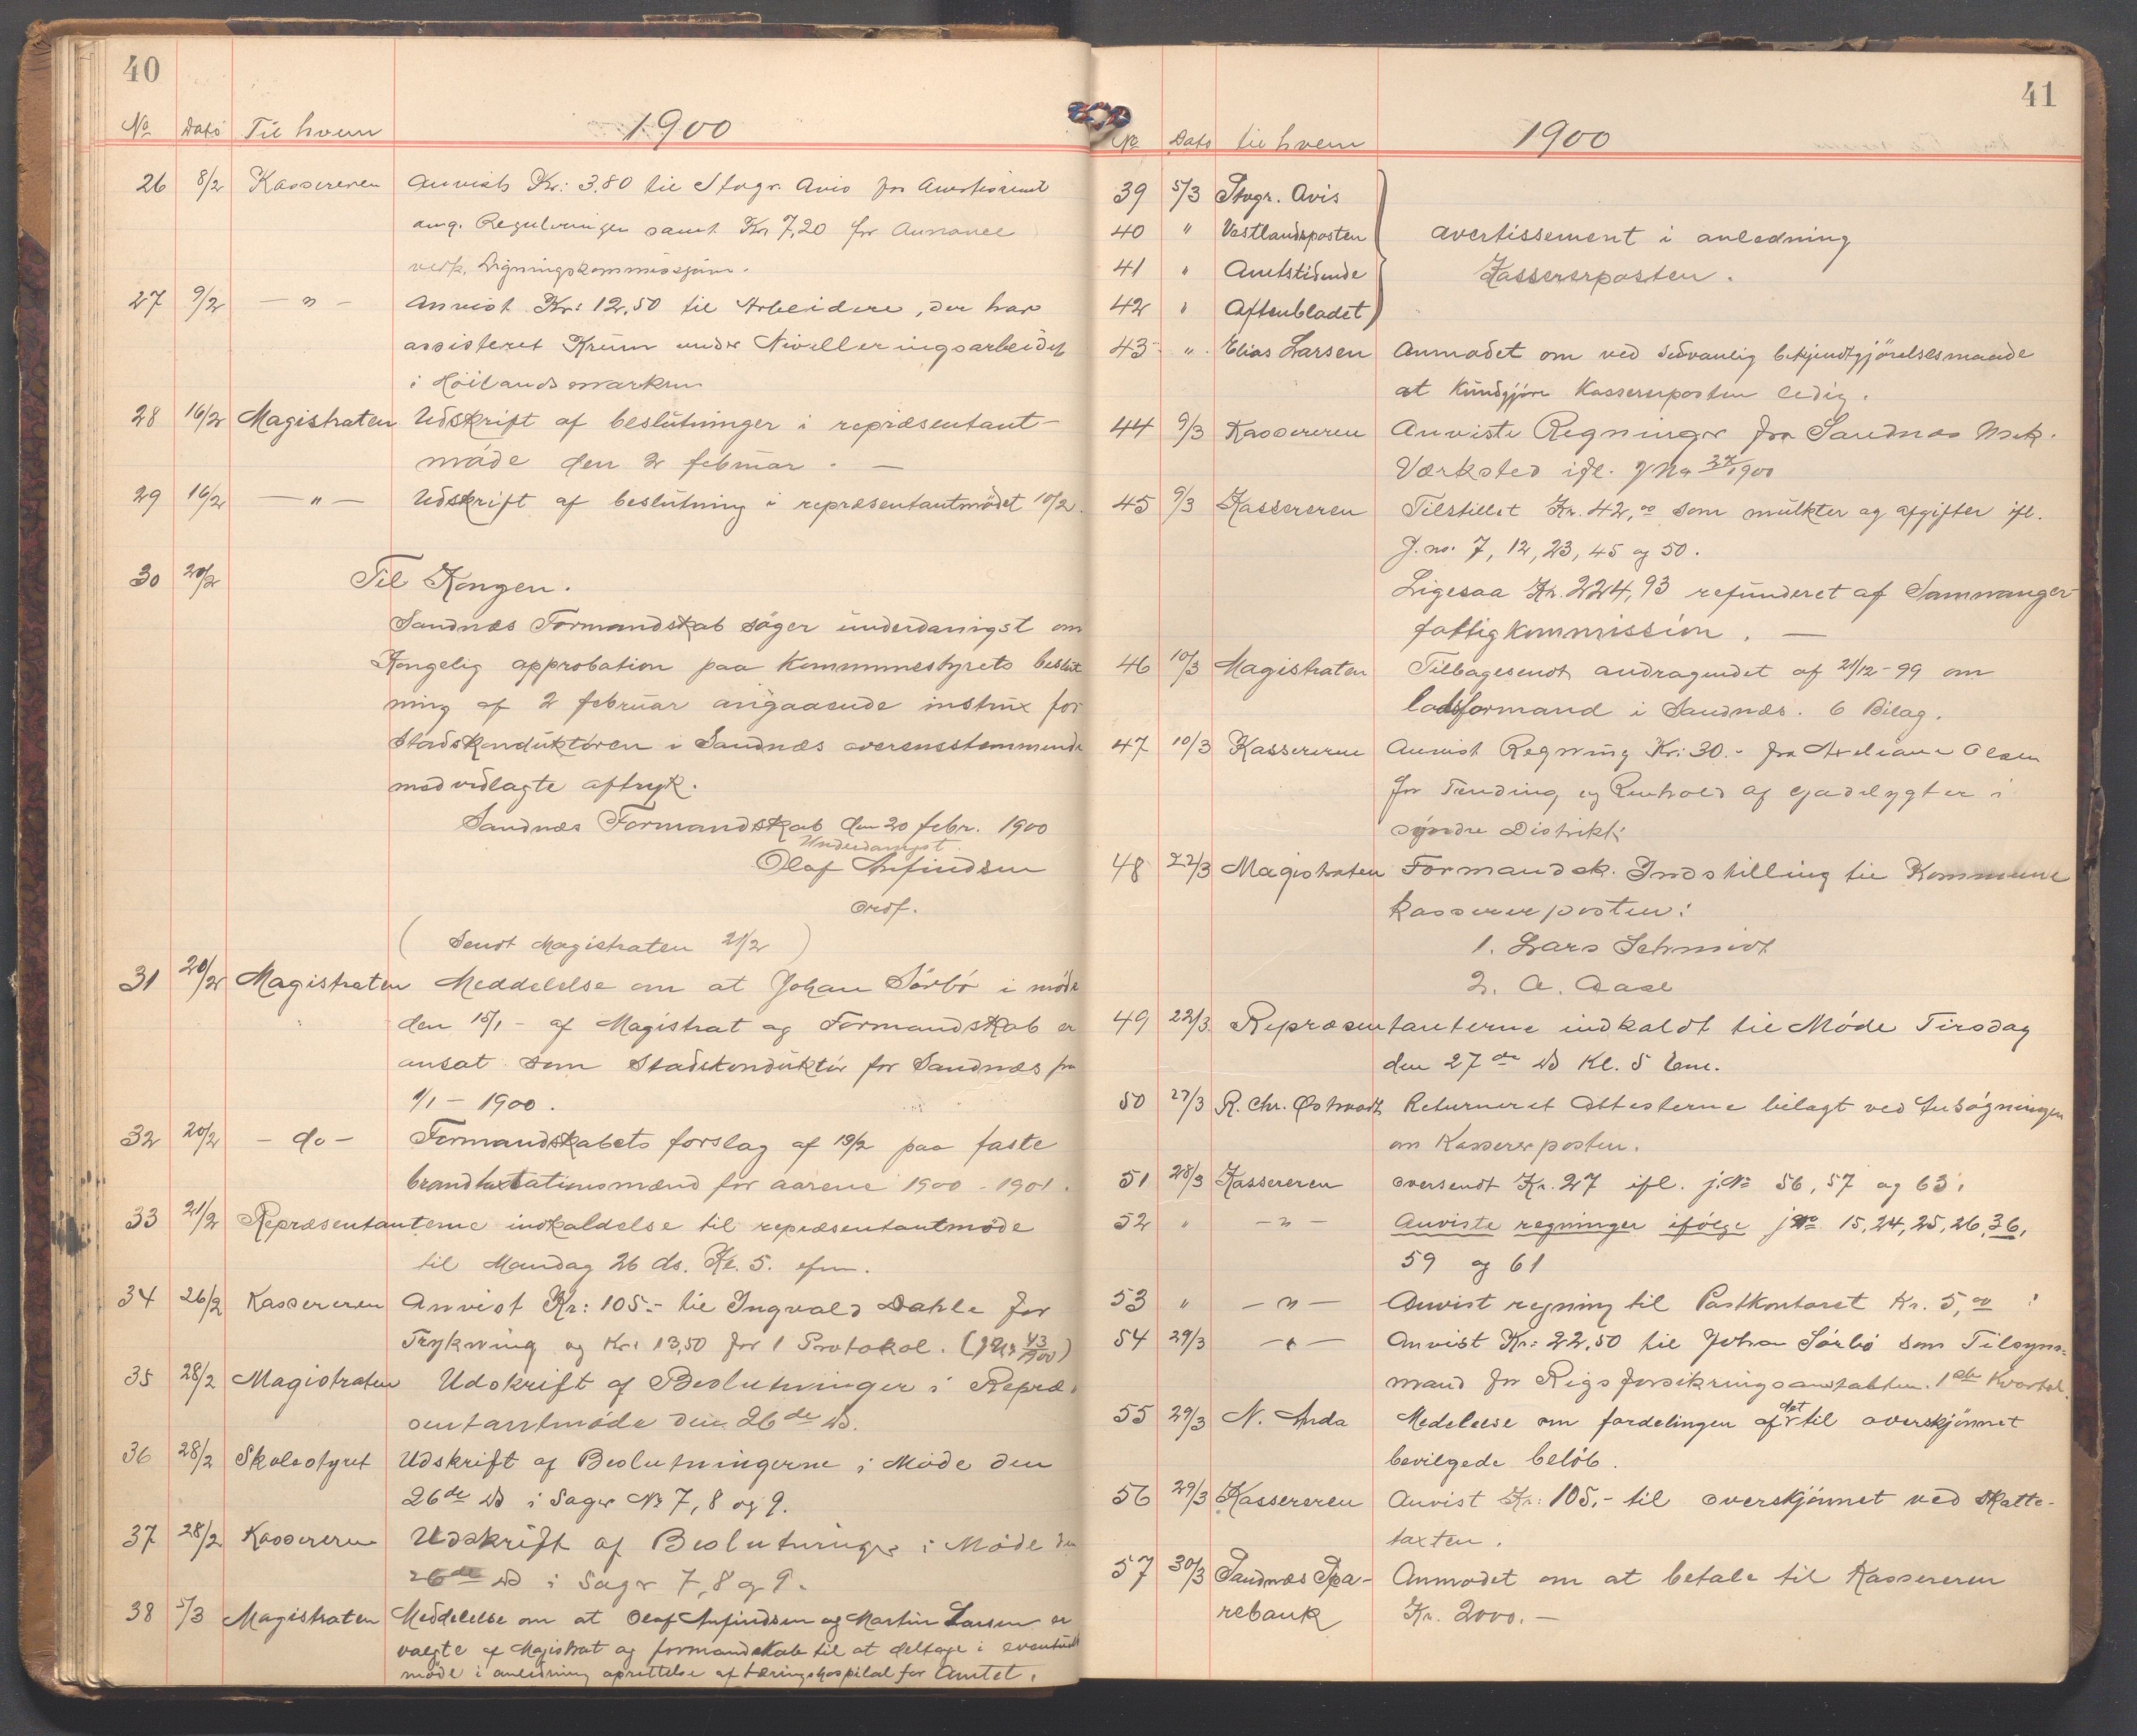 40
No Dato Til hvem 1900
26 8/2 Kassereren Anvist Kr: 3.80 til Stvgr. Avis for Avertissement
ang. Reguleringen samt Kr 7,20 for Annonce
vedk. Ligningskommissjon.
27 9/2 — " — Anvist Kr: 12,50 til Arbeidere, der har
assisteret Krum under Nivelleringsarbeidet
i Höilandsmarken
28 16/2 Magistraten Udskrift af beslutninger i repræsentant-
møde den 2 februar. —
29 16/2 — " — Udskrift af beslutning i repræsentantmødet 10/2.
30 20/2 Til Kongen.
Sandnæs Formandskab søger underdanigst om
Kongelig approbation paa Kommunestyrets beslut
ning af 2 februar angaaende instrux for
Stadskonduktøren i Sandnæs overensstemmende
med vedlagte aftryk.
Sandnæs Formandskab den 20 febr. 1900
Underdanigst
Olaf Anfindsen
ordf.
( Sendt Magistraten 21/2 )
31 20/2 Magistraten Meddelelse om at Johan Sörbö i møde
den 15/1 - af Magistrat og Formandskab er
ansat som Stadskonduktör for Sandnæs fra
1/1 - 1900.
32 20/2 - do - Formandskabets forslag af 19/2 paa faste
brandtaxtationsmænd for aarene 1900 - 1901.
33 21/2 Repræsentanterne indkaldelse til repræsentantmøde
til Mandag 26 ds. Kl. 5. efm.
34 26/2 Kassereren Anvist Kr: 105.- til Ingvald Dahle for
Trykning og Kr: 13,50 for 1 Protokol. (J No 43/1900)
35 28/2 Magistraten Udskrift af Beslutninger i Repræ-
sentantmøde den 26de ds.
36 28/2 Skolestyret Udskrift af Beslutningerne i Møde den
26de ds i Sager No 7, 8 og 9.
37 28/2 Kassereren Udskrift af Beslutninger i Møde den
26de ds i Sager 7, 8 og 9.
38 5/3 Magistraten Meddelelse om at Olaf Anfindsen og Martin Larsen er
valgte af Magistrat og formandskab til at deltage i eventuelt
møde i anledning oprettelse af tæringshospital for Amtet.
41
No Dato til hvem 1900
39 5/3 Stvgr. Avis
40 " Vestlandsposten avertissement i anledning
41 " Amtstidende Kassererposten.
42 " Aftenbladet
43 " Elias Larsen Anmodet om ved sedvanlig bekjendtgjörelsesmaade
at kundgjøre Kassererposten ledig.
44 9/3 Kassereren Anviste Regninger fra Sandnæs Mek.
Værksted ifl. J No 34/1900
45 9/3 Kassereren Tilstillet Kr. 42,00 som mulkter og afgifter ifl.
J. no: 7, 12, 23, 45 og 50.
Ligesaa Kr. 224,93 refunderet af Samnanger
fattigkommission. —
46 10/3 Magistraten Tilbagesendt andragendet af 21/12 - 99 om
lodsformand i Sandnæs. 6 Bilag.
47 10/3 Kassereren Anvist Regning Kr: 30.- fra Olsen
for Tending og Renhold af gadelygter i
søndre Distrikt.
48 22/3 Magistraten Formandsk. Indstilling til Kommune
kassererposten:
1. Lars Schmidt
2. A. Aase
49 22/3 Repræsentanterne indkaldt til Møde Tirsdag
den 27de ds Kl. 5 Em.
50 27/3 R. Chr. Østraadt Returneret Attesterne bilagt ved Ansøgningen
om Kassererposten.
51 28/3 Kassereren oversendt Kr. 27 ifl. j.No 56, 57 og 63.
52 " — " — Anviste regninger ifølge j No 15, 24, 25, 26, 36,
59 og 61
53 " — " — Anvist regning til Postkontoret Kr. 5,00
54 29/3 — " — Anvist Kr: 22,50 til Johan Sörbö som Tilsyns-
mand for Rigsforsikringsanstalten. 1ste Kvartal.
55 29/3 N. Anda Medelelse om fordelingen af det til overskjönnet
bevilgede belöb.
56 29/3 Kassereren Anvist Kr: 105,- til overskjönnet ved skatte-
taxten.
57 30/3 Sandnæs Spa- Anmodet om at betale til Kassereren
rebank Kr. 2000.—